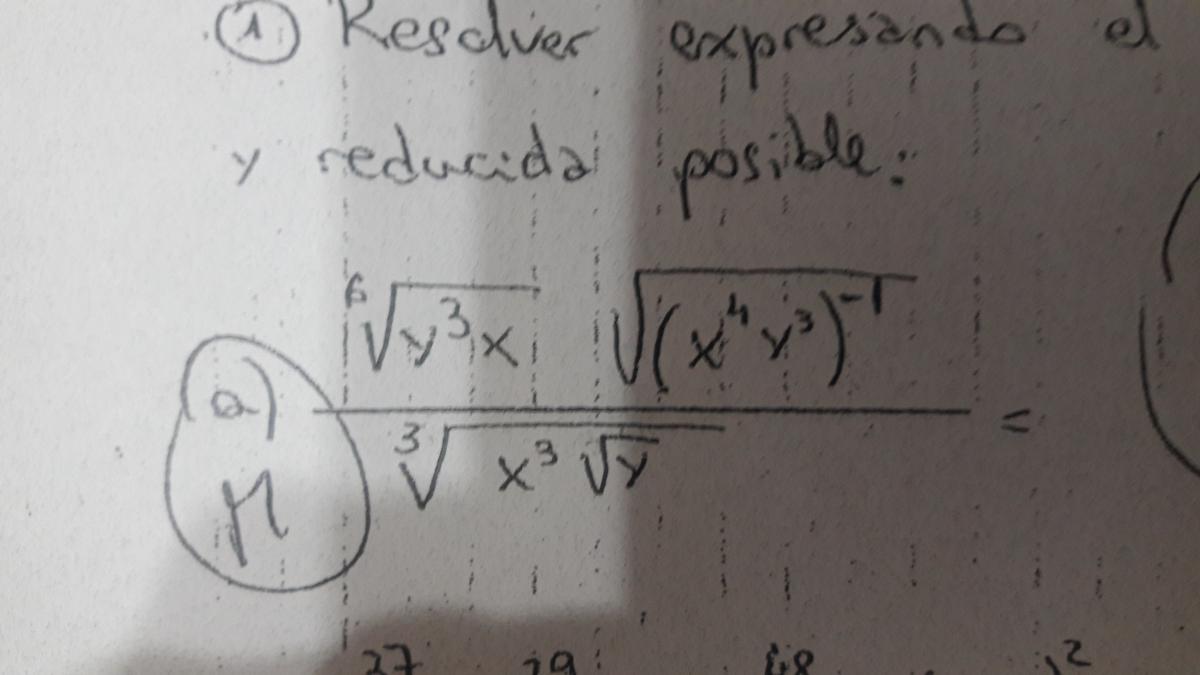 ① Resolver expresando el
y reducida posible:
a) \frac{\sqrt[6]{y^3x} \sqrt{(x^4y^3)^{-1}}}{\sqrt[3]{x^3\sqrt{y}}} =